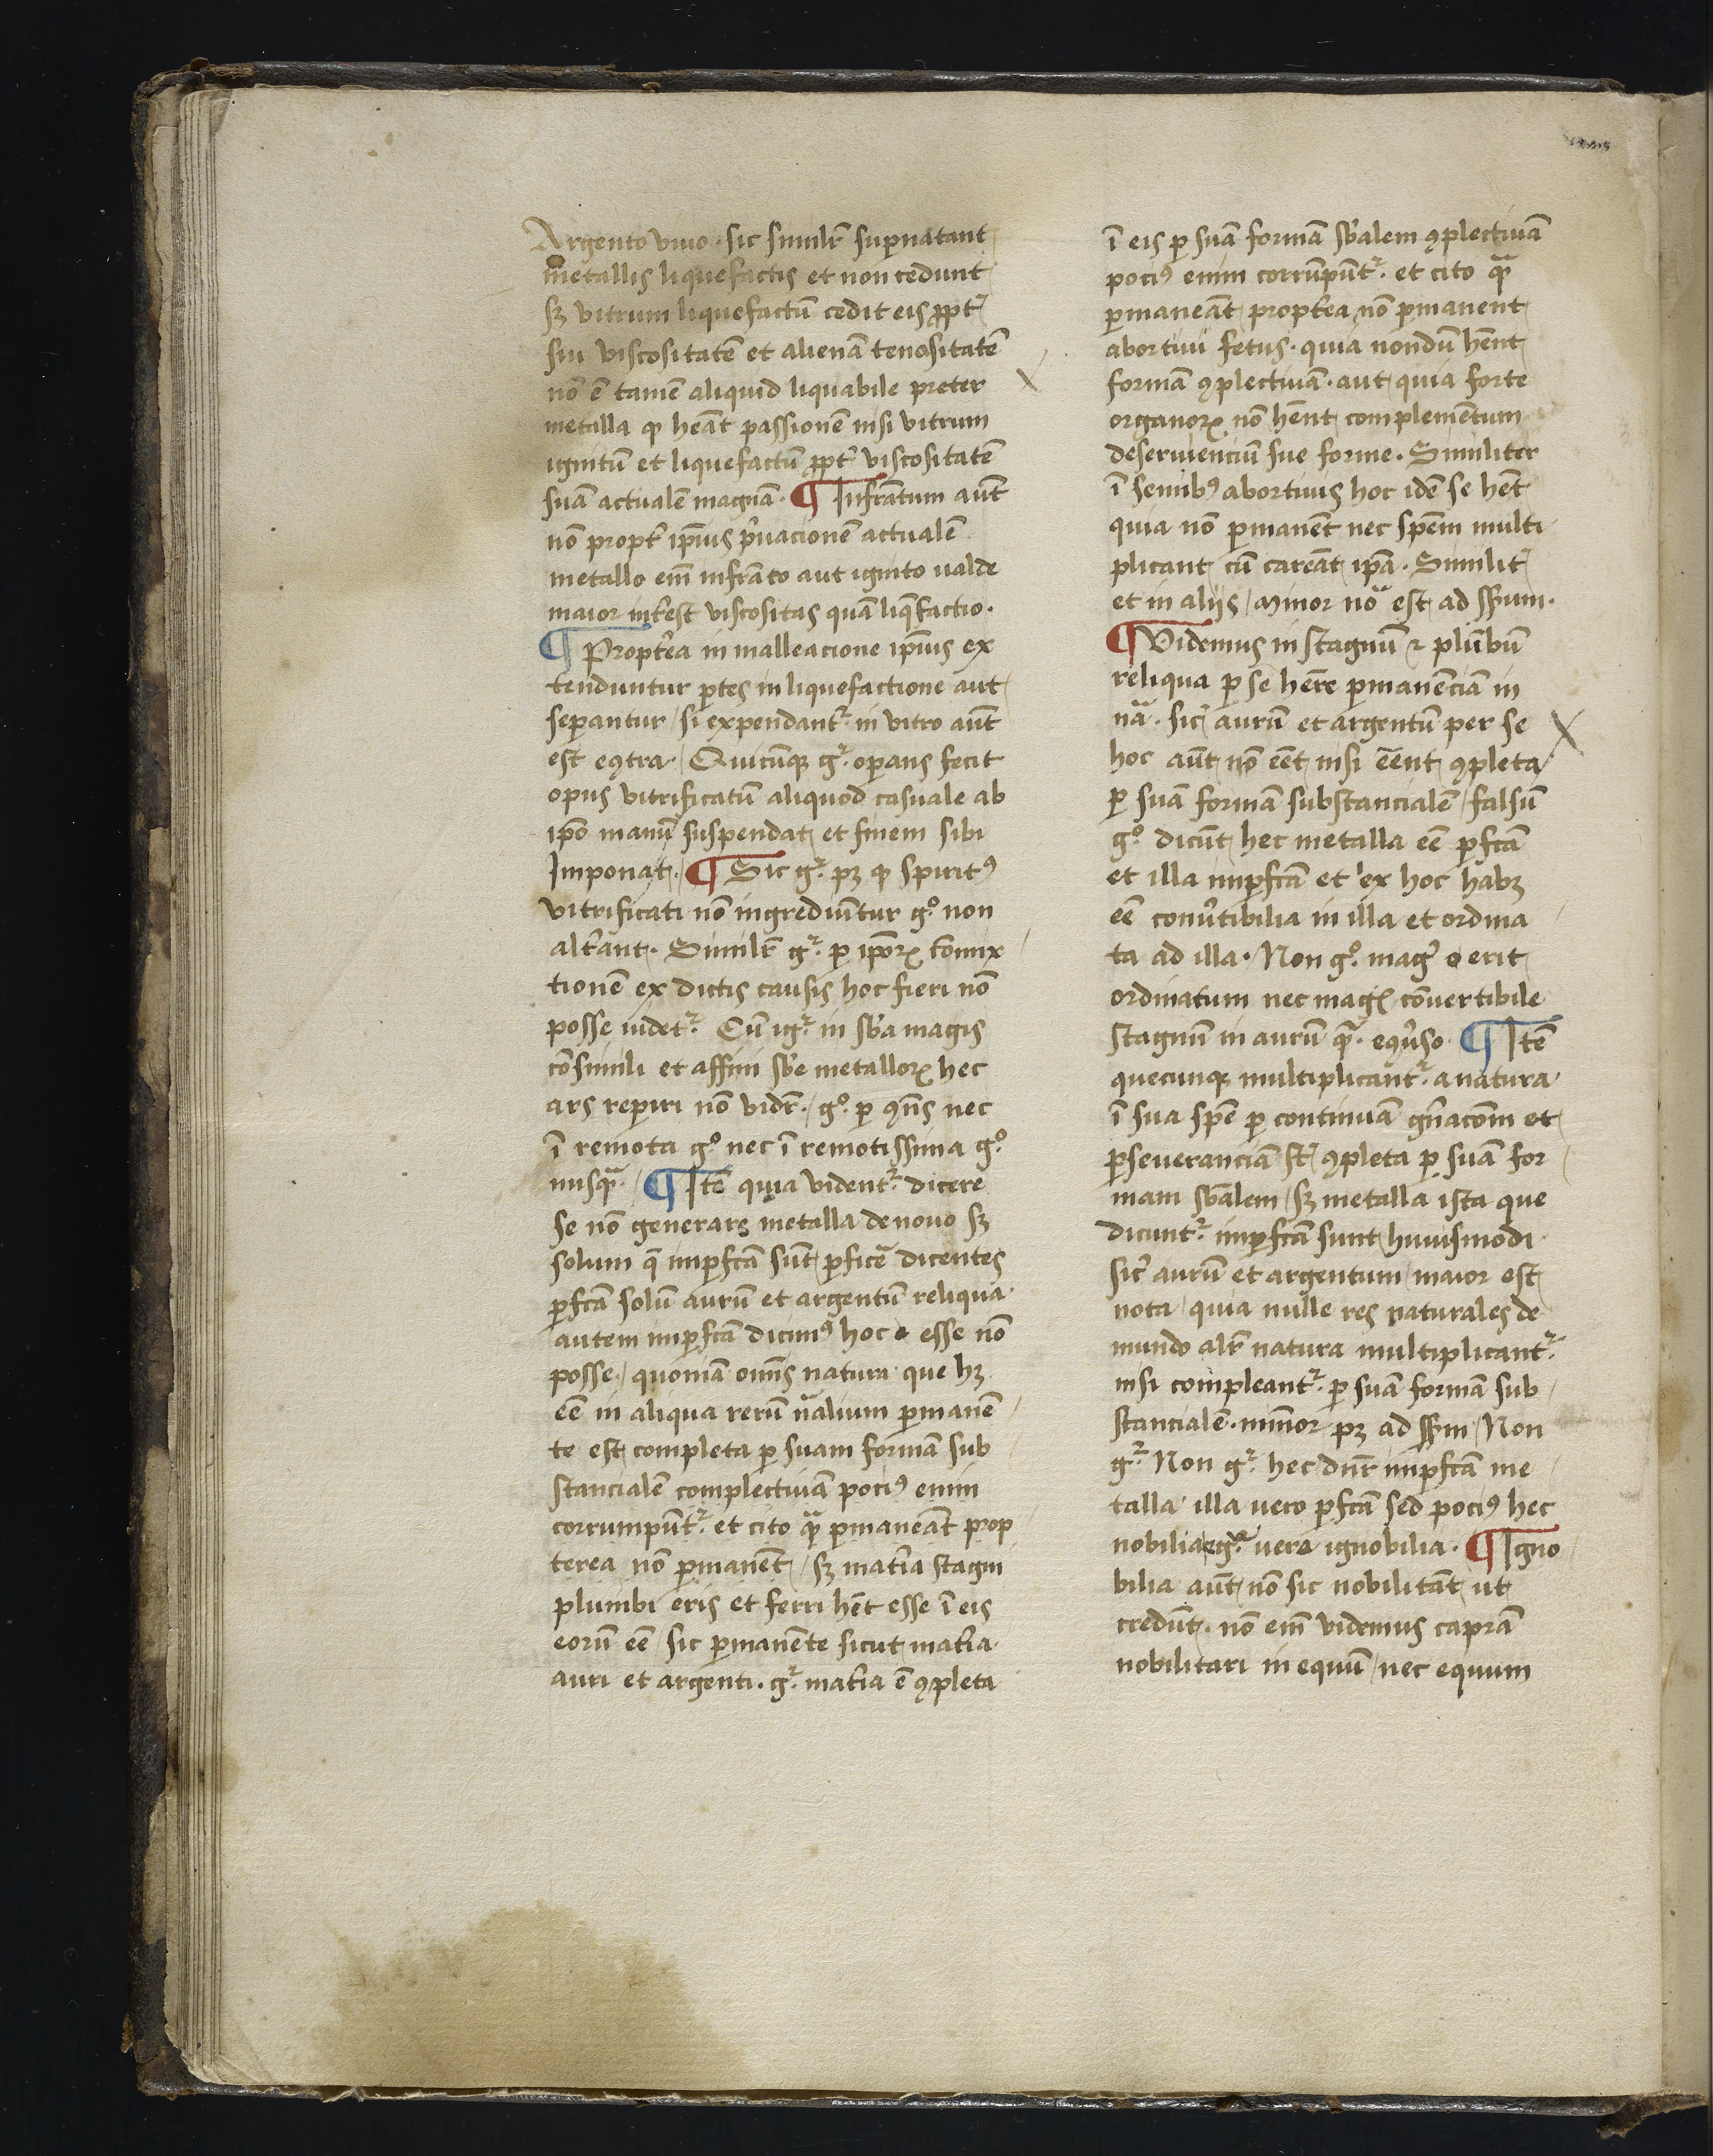 Argento viuo · sic similr̄ supernatant
metallis liquefactis et non cedunt
sꝫ vitrum liquefactū cedit eis ꝓpt᷑
sui viscositatē et alienā tenositatē
nō ē tamē aliquid liquabile preter
metalla ꝙ heāt passionē nisi vitrum
ignitū et liquefactū ꝓpt᷑ viscositatē
suā actualē magnā · ¶ Infrāctum aūt
nō propt᷑ ip̄ius p̓uacionē actualē
metallo em̄ infrācto aut ignito ualde
maior int᷑est viscositas quā liq̄factio ·
¶ Propt᷑ea in malleacione ip̄ius ex
tenduntur ꝑtes in liquefactione aut
seꝑantur / si expendant᷑ · in vitro aūt
est eꝯtra · Quicūqꝫ g᷑ · oꝑans fecit
opus vitrificatū aliquod casuale ab
ip̄o manū suspendat et finem sibi
Imponat · ¶ Sic g᷑ · pꝫ ꝙ spiritꝰ
vitrificati nō ingrediūtur gͦ · non
alt᷑ant · Similr̄ g᷑ · ꝑ ip̄oꝝ cōmix
tionē ex dictis causis hoc fieri nō
posse uidet᷑ · Cū ig᷑ · in sb̄a magis
cōsimili et affini sb̄e metalloꝝ hec
ars reperiri nō vidr̄ · / gͦ · ꝑ ꝯn̄s nec
ī remota gͦ · nec ī remotissima gͦ ·
nusqᷓ · / ¶ Itē quia vident᷑ · dicere
se nō generare metalla de nouo sꝫ
solum q̄ imꝑfcā sūt ꝑficē dicentes
ꝑfcā solū aurū et argentū reliqua
autem imꝑfcā dicimꝰ hoc esse nō
posse · / quoniā om̄s natura que hꝫ
eē in aliqua rerū nālium ꝑmanē
te est completa ꝑ suam formā sub
stancialē complectiuā pociꝰ enim
corrumpūt᷑ · et cito qᷓ ꝑmaneāt prop
terea nō ꝑmanēt / sꝫ mat᷑ia stagni
plumbi eris et ferri hēt esse ī eis
eorū eē / sic ꝑmanēte sicut mat᷑ia
auri et argenti · g᷑ · mat᷑ia ē ꝯpleta
ī eis ꝑ suā formā sb̄alem ꝯplectiuā
pociꝰ enim corrūpūt᷑ · et cito qᷓ
ꝑmaneāt propt᷑ea nō ꝑmanent
abortiui fetus · quia nondū hēnt
formā ꝯplectiuā · aut quia forte
organoꝝ nō hēnt complemētum
deseruienciū sue forme · Similiter
ī semibꝰ abortiuis hoc idē se hēt
quia nō ꝑmanēt nec spēm multi
plicant cū careāt ip̄a · Similit᷑
et in aliis / minor nōᷓ est ad ssum ·
¶ Videmus in stagnū ⁊ plūbū
reliqua ꝑ se hēre ꝑmanēciā in
nā · sic᷑ aurū et argentū per se
hoc aūt nō eēt nisi eēnt ꝯpleta
ꝑ suā formā substancialē / falsū
gͦ · dicūt hec metalla eē ꝑfcā
et illa imꝑfcā et ex hoc habꝫ
eē conu᷑tibilia in illa et ordina
ta ad illa · Non gͦ · mag᷑ erit
ordinatum nec magꝭ cōuertibile
stagnū in aurū qᷓ · eꝯu᷑so · ¶ Itē
quecunqꝫ multiplicant᷑ · a natura
ī sua spē ꝑ continuā gn̄acōm et
ꝑseueranciā st᷑ ꝯpleta ꝑ suā for
mam sb̄alem / sꝫ metalla ista que
dicunt᷑ · imꝑfcā sunt huiusmodi
sic᷑ aurū et argentum / maior est
nota / quia nulle res naturales de
mundo alr̄ natura multiplicant᷑ ·
nisi compleant᷑ · ꝑ suā formā sub
stancialē · minor pꝫ ad ssm / Non
g᷑ · Non g᷑ · hec dn̄r imꝑfcā me
talla illa uero ꝑfcā sed pociꝰ hec
nobilia g᷑ · uera ignobilia · ¶ Igno
bilia aūt nō sic nobilitāt ut
credūt · nō em̄ videmus caprā
nobilitari in equū / nec equum